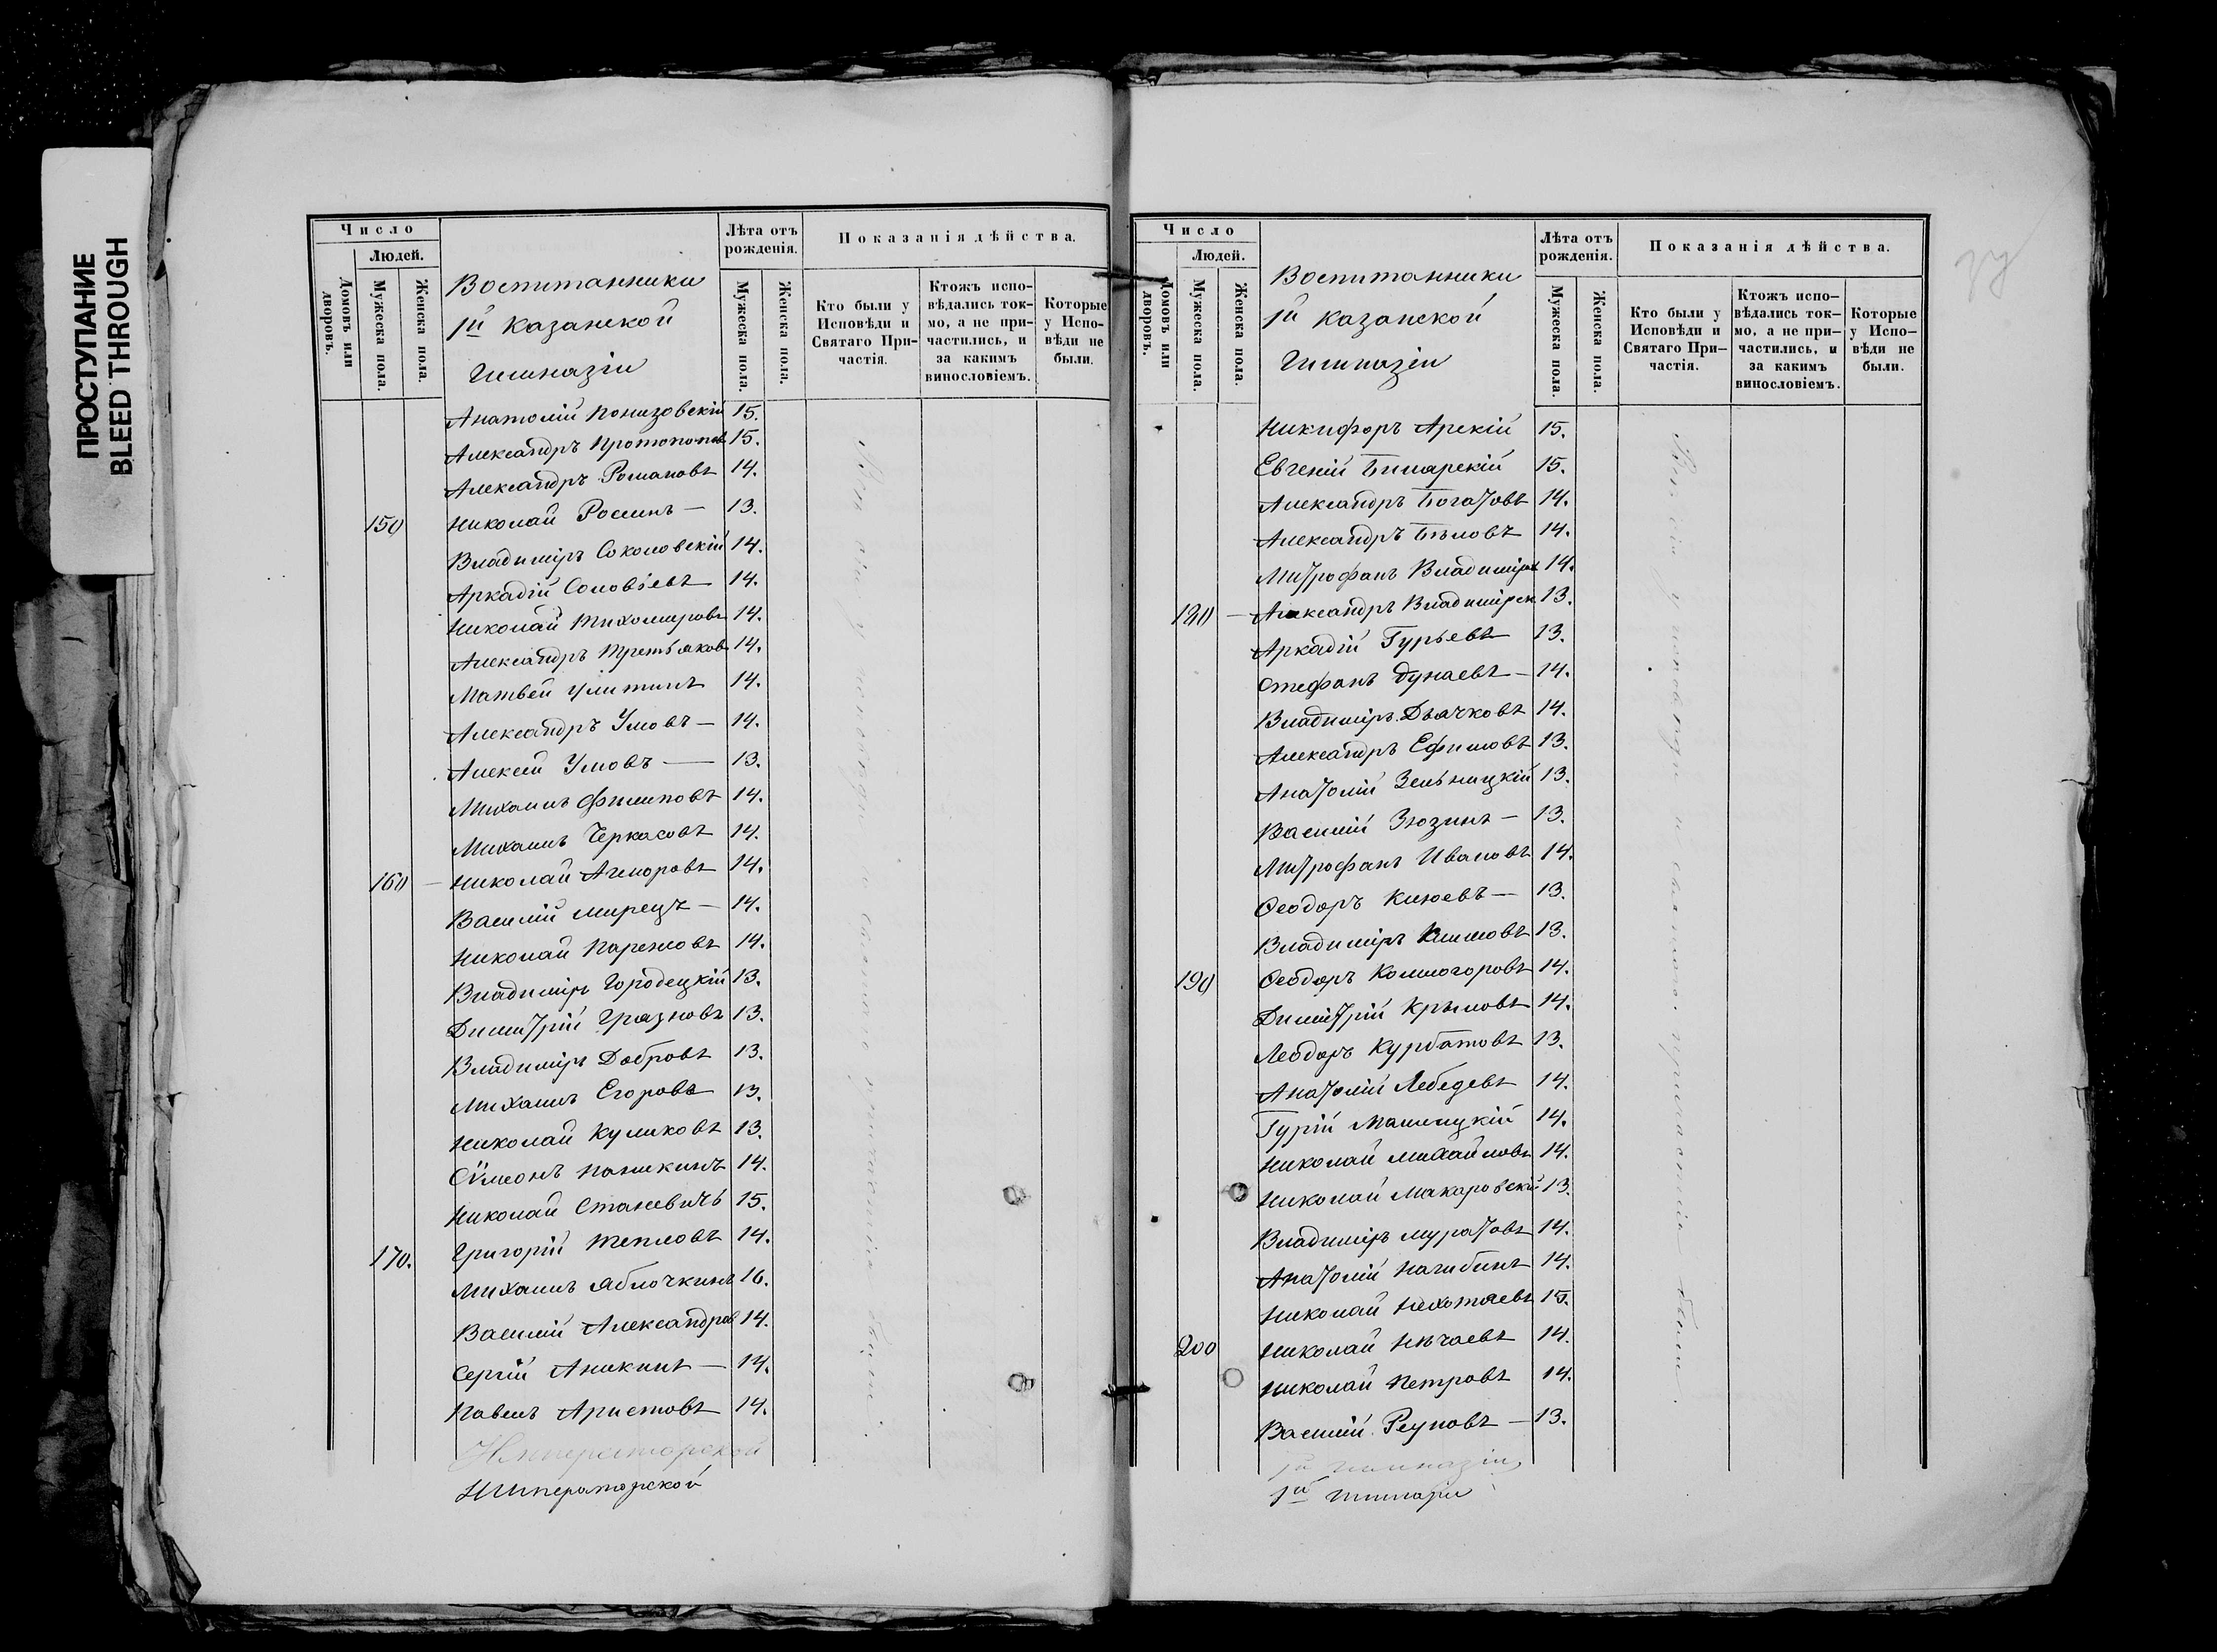 ПРОСТУПАНИЕ
BLEED THROUGH
Число
Людей.
Домовъ или дворовъ.
Мужеска пола.
Женска пола.
Воспитанники
1й Казанской
Гимназіи
Лѣта отъ рожденія.
Мужеска пола.
Женска пола.
Показанія дѣйства.
Кто были у Исповѣди и Святаго Причастія.
Ктожъ исповѣдались токмо, а не причастились, и за какимъ винословіемъ.
Которые у Исповѣди не были.
Анатолій Понизовскій 15.
Александръ Протопопов 15.
Александръ Романовъ 14.
150 Николай Россинъ — 13.
Владиміръ Соколовскій 14.
Аркадій Соловьевъ 14.
Николай Тихомировъ 14.
Александръ Третьяков 14.
Матвей Улитинъ 14.
Александръ Умовъ — 14.
Алексей Умовъ — 13.
Михаилъ Филиповъ 14.
Михаилъ Черкасовъ 14.
160 — Николай Агноровъ 14.
Василій Мирецъ — 14.
Николай Пареновъ 14.
Владиміръ Городецкій 13.
Димитрій Грязновъ 13.
Владиміръ Добровъ 13.
Михаилъ Егоровъ 13.
Николай Куликовъ 13.
Сѵмеонъ Паникинъ 14.
Николай Станевичь 15.
170. Григорій Тепловъ 14.
Михаилъ Яблочкинъ 16.
Василій Александров 14.
Сергій Аникинъ — 14.
Павелъ Аристовъ 14.
Императорской
Императорской
Число
Людей.
Домовъ или дворовъ.
Мужеска пола.
Женска пола.
Воспитанники
1й Казанской
Гимназіи
Лѣта отъ рожденія.
Мужеска пола.
Женска пола.
Показанія дѣйства.
Кто были у Исповѣди и Святаго Причастія.
Ктожъ исповѣдались токмо, а не причастились, и за какимъ винословіемъ.
Которые у Исповѣди не были.
Никифоръ Арскій 15.
Евгеній Бимарскій 15.
Александръ Богатовъ 14.
Александръ Бѣловъ 14.
Митрофанъ Владиміров 14.
180 — Александръ Владимірск 13.
Аркадій Гурьевъ 13.
Стефанъ Дунаевъ — 14.
Владиміръ Дьячковъ 14.
Александръ Ефимовъ 13.
Анатолій Зельницкій 13.
Василій Зюзинъ — 13.
Митрофанъ Ивановъ 14.
Ѳеодоръ Клюевъ — 13.
Владиміръ Климовъ 13.
190 Ѳеодоръ Колмогоровъ 14.
Димитрій Крыловъ 14.
Ѳеодоръ Курбатовъ 13.
Анатолій Лебедевъ 14.
Гурій Малицкій 14.
Николай Михайловъ 14.
Николай Макаровскій 13.
Владиміръ Муратовъ 14.
Анатолій Нагибинъ 14.
Николай Нехотяевъ 15.
200 Николай Нѣчаевъ 14.
Николай Петровъ 14.
Василій Реуновъ — 13.
1й Гимназіи
1й Гимназіи